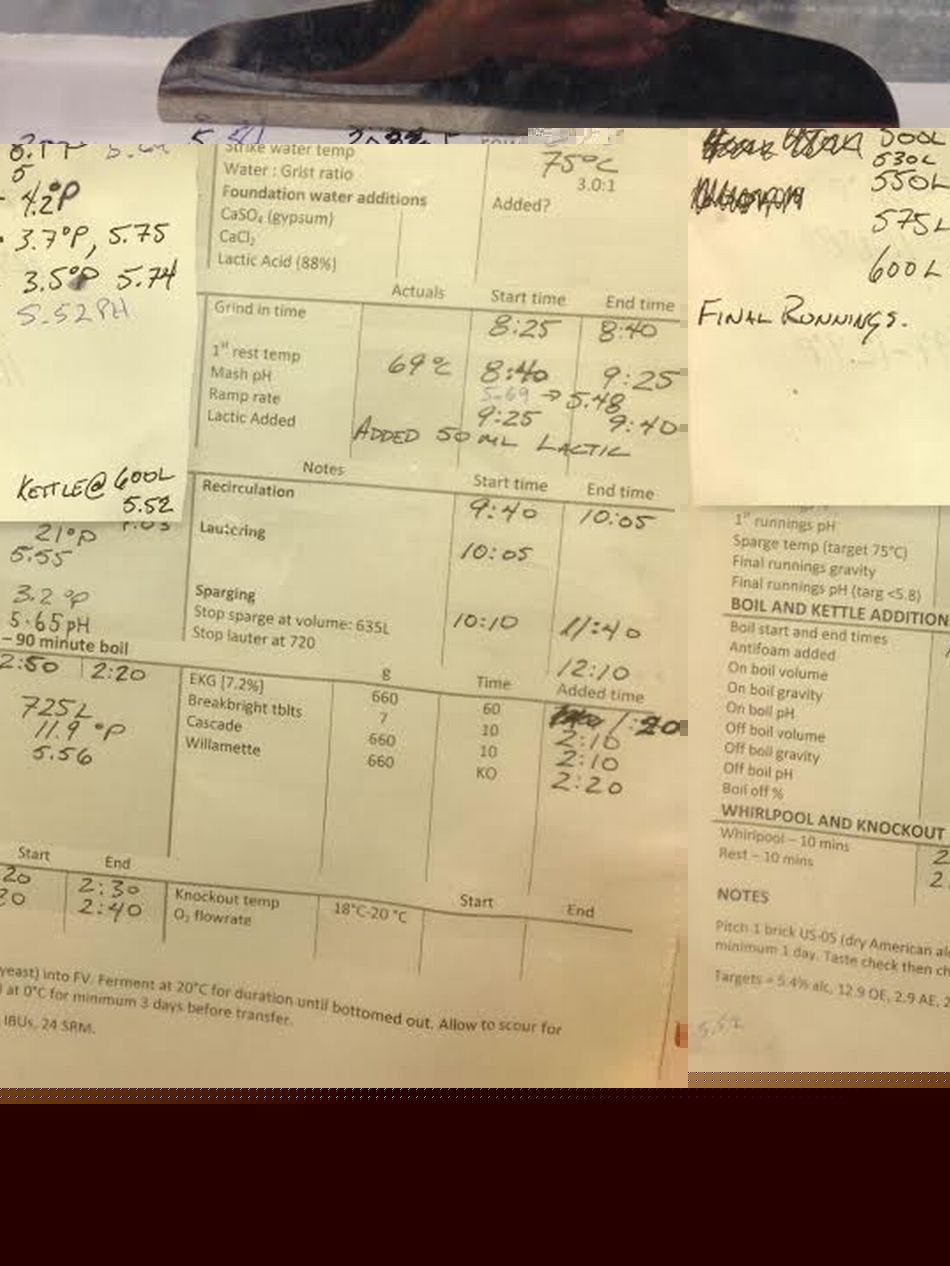 5
4.2°P
3.7°P, 5.75
3.5°P 5.74
5.52 PH
KETTLE @ 600L
5.52
21°P
5.55
3.2 °P
5.65 pH
– 90 minute boil
2:50 2:20
725 L
11.9 °P
5.56
Start End
20 2:30
30 2:40
Strike water temp 75°C
Water : Grist ratio 3.0:1
Foundation water additions Added?
CaSO₄ (gypsum)
CaCl₂
Lactic Acid (88%)
Actuals Start time End time
Grind in time 8:25 8:40
1st rest temp 69°C 8:40 9:25
Mash pH 5.69 → 5.48
Ramp rate 9:25 9:40
Lactic Added ADDED 50 mL LACTIC
Notes Start time End time
Recirculation 9:40 10:05
Lautering 10:05
Sparging
Stop sparge at volume: 635L 10:10 11:40
Stop lauter at 720 12:10
g Time Added time
EKG [7.2%] 660 60 1:20
Breakbright tblts 7 10 2:10
Cascade 660 10 2:10
Willamette 660 KO 2:20
Start End
Knockout temp 18°C-20 °C
O₂ flowrate
yeast) into FV. Ferment at 20°C for duration until bottomed out. Allow to scour for
at 0°C for minimum 3 days before transfer.
IBUs, 24 SRM.
500L
530L
550L
575L
600L
FINAL RUNNINGS.
1st runnings pH
Sparge temp (target 75°C)
Final runnings gravity
Final runnings pH (targ <5.8)
BOIL AND KETTLE ADDITION
Boil start and end times
Antifoam added
On boil volume
On boil gravity
On boil pH
Off boil volume
Off boil gravity
Off boil pH
Boil off %
WHIRLPOOL AND KNOCKOUT
Whirlpool – 10 mins 2
Rest – 10 mins 2
NOTES
Pitch 1 brick US-05 (dry American ale
minimum 1 day. Taste check then ch
Targets = 5.4% alc, 12.9 OE, 2.9 AE, 2